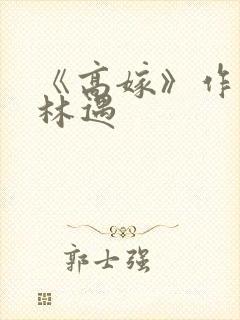 《高嫁》作
林遇
郭士强